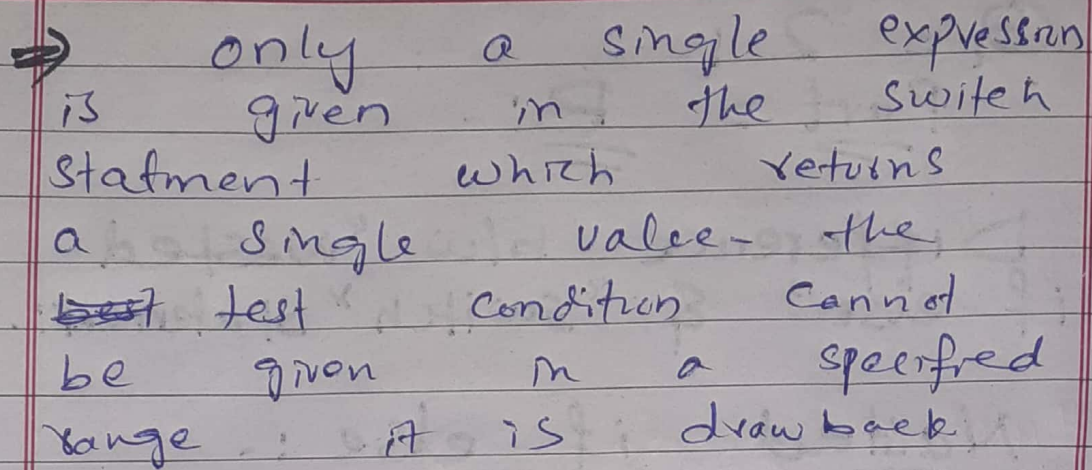 ⇒ only a single expression
is given in the switch
Statment which returns
a single value- the
test condition cannot
be given in a specified
range. it is drawback.